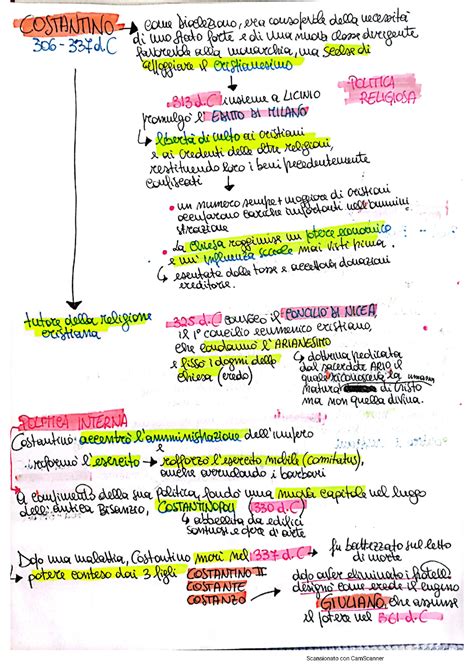 COSTANTINO
306-337 d.C
come Diocleziano, era consapevole della necessità
di uno stato forte e di una nuova classe dirigente
favorevole alla monarchia, ma scelse di
appoggiare il cristianesimo
POLITICA
RELIGIOSA
313 d.C insieme a LICINIO
promulgò l'EDITTO DI MILANO
libertà di culto ai cristiani
e ai credenti delle altre religioni,
restituendo loro i beni precedentemente
confiscati
un numero sempre + maggiore di cristiani
occuparono cariche importanti nell'ammini
strazione
la chiesa raggiunse un potere economico
e un'influenza sociale mai viste prima.
esentate dalle tasse e accettava donazioni
ereditarie.
tutore della religione
cristiana
325 d.C convocò il CONCILIO DI NICEA
il 1° concilio ecumenico cristiano,
che condannò l'ARIANESIMO
e fissò i dogmi della
chiesa (credo)
dottrina predicata
dal sacerdote ARIO il
quale riconosceva la umana
natura di Cristo
ma non quella divina.
POLITICA INTERNA
Costantino: accentrò l'amministrazione dell'impero
e
riformò l'esercito → rafforzò l'esercito mobile (comitatus),
anche arruolando i barbari
A compimento della sua politica, fondò una nuova capitale nel luogo
dell'antica Bisanzio, COSTANTINOPOLI (330 d.C)
abbellita da edifici
sontuosi e opere di arte
Dopo una malattia, Costantino morì nel 337 d.C →
fu battezzato sul letto
di morte
potere conteso dai 3 figli
COSTANTINO II
COSTANTE
COSTANZO
dopo aver eliminato i fratelli
designò come erede il cugino
GIULIANO che assunse
il potere nel 361 d.C
Scansionato con CamScanner